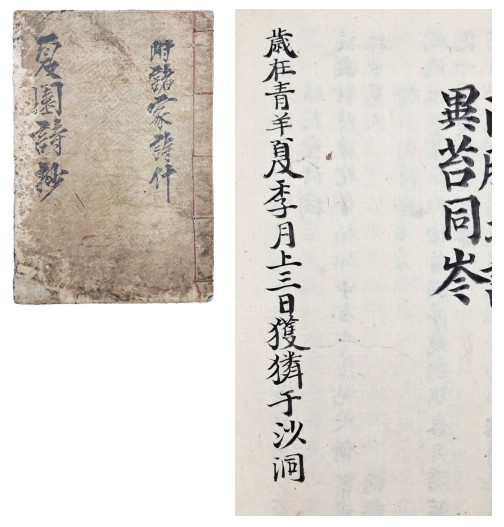 附諸家詩什
夏園詩抄
異苔同岑
歲在青羊夏季月上三日獲獜于沙洞